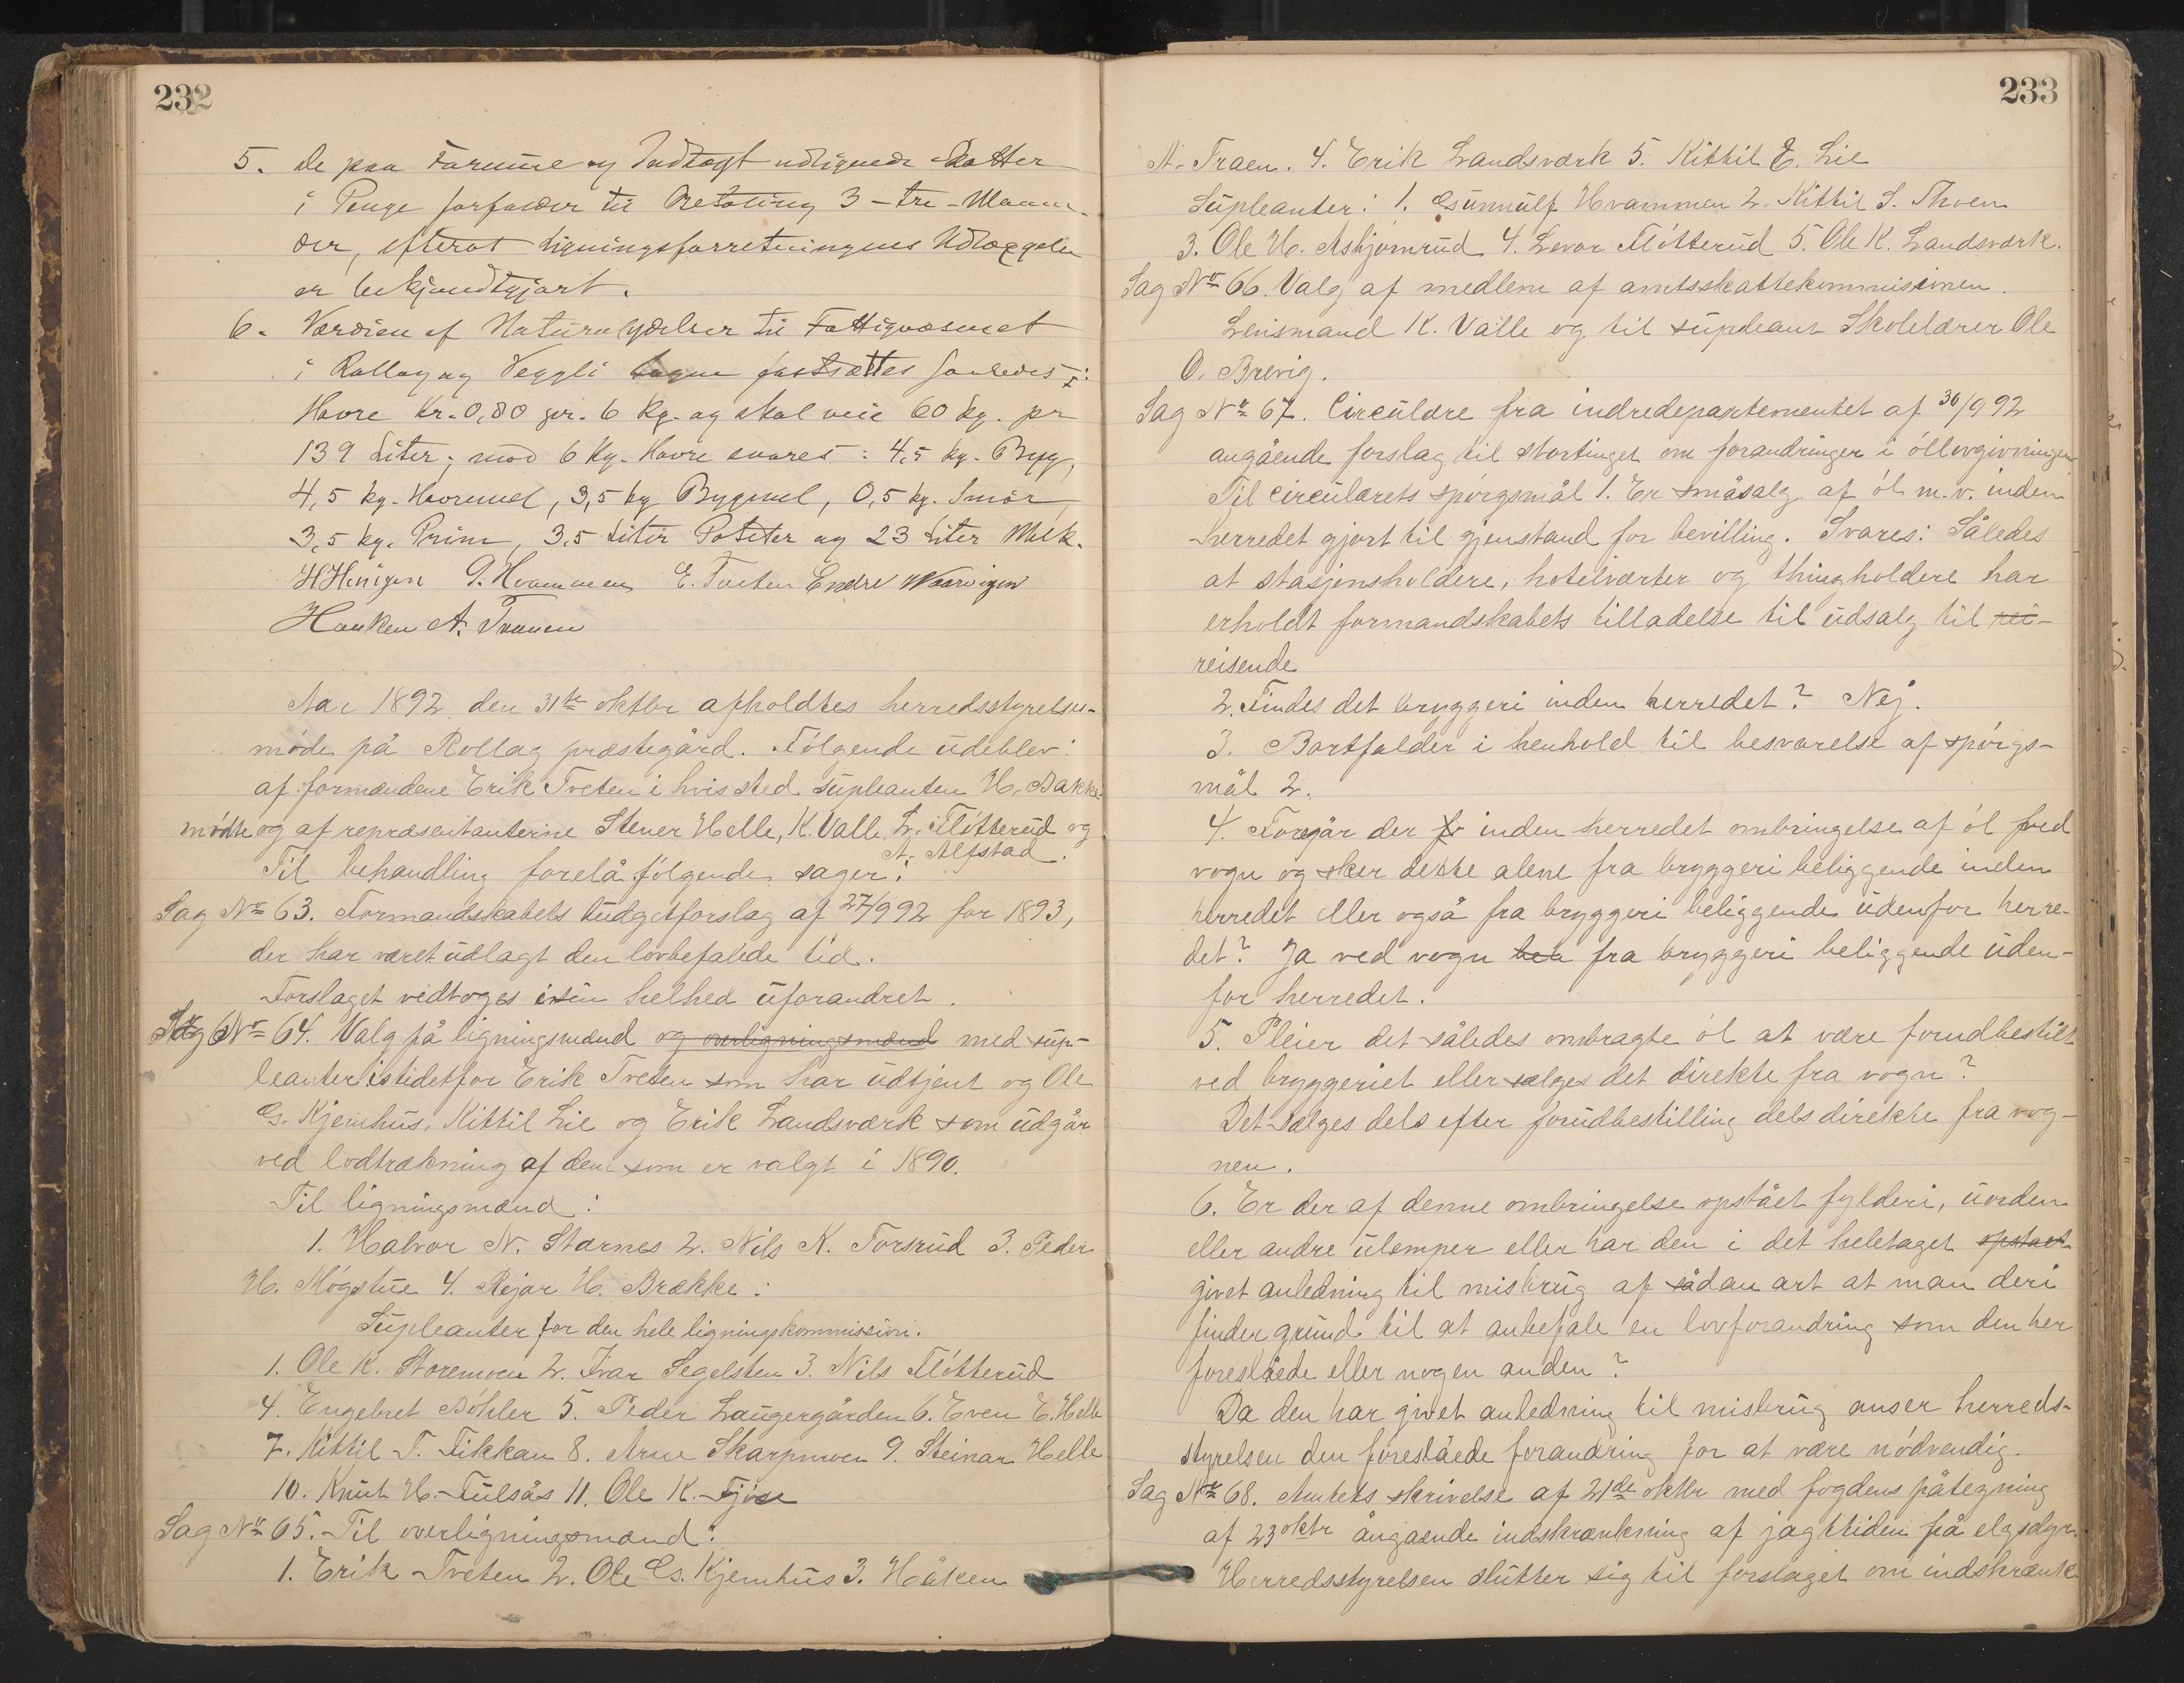 232
5. De paa Formue og Indtægt udlignede Skatter
i Penge forfalder til Betaling 3 - tre - Maane-
der, efterat Ligningsforretningens Udlæggelse
er bekjendtgjort.
6. Værdien af Naturalydelser til Fattigvæsenet
i Rollag og Veggli sogne fastsættes saaledes:
Havre Kr. 0,80 pr. 6 Kg. og skal veie 60 kg. pr
139 Liter; mod 6 Kg. Havre svares: 4,5 kg. Byg,
4,5 kg. Havremel, 3,5 kg Bygmel, 0,5 kg. Smør,
3,5 kg. Prim, 3,5 Liter Poteter og 23 Liter Melk.
G. Hvammen E. Tveten Endre
Haaken A. Traaen
Aar 1892 den 31te oktbr afholdtes herredsstyrelses-
møde på Rollag præstegård. Følgende udeblev:
af formændene Erik Tveten i hvis sted supleanten H. Bakke
mødte og af repræsentanterne Stener Helle, K. Valle, L. Fløtterud og
A. Alfstad.
Til behandling forelå følgende sager:
Sag Nr 63. Formandskabets budgetforslag af 27/9 92 for 1893,
der har været udlagt den lovbefalede tid.
Forslaget vedtoges i sin helhed uforandret.
Sag Nr 64. Valg på ligningsmænd og overligningsmænd med sup-
leanter istidetfor Erik Tveten som har udtjent og Ole
G. Kjemhus, Kittil Lie og Erik Landsværk som udgår
ved lodtrækning af dem som er valgt i 1890.
Til ligningsmænd:
1. Halvor N. Stærnes 2. Nils K. Forsrud 3. Peder
H. Møgstue 4. Rejar H. Brække:
Supleanter for den hele ligningskommission.
1. Ole K. Storemoen 2. Ivar Segelsten 3. Nils Fløtterud
4. Engebret Bøhler 5. Peder Laugergården 6. Even E. Helle
7. Kittil T. Fikkan 8. Arne Skarpmoen 9. Steinar Helle
10. Knut H. Fulsås 11. Ole K. Fjøse
Sag Nr 65. Til overligningsmænd:
1. Erik Tveten 2. Ole Gs. Kjemhus 3. Håken
233
A. Traen. 4. Erik Landsværk 5. Kittil E. Lie
Supleanter: 1. Gunnulf Hvammen 2. Kittil S. Thoen
3. Ole H. Asbjørnrud 4. Levor Fløtterud 5. Ole K. Landsværk.
Sag Nr 66. Valg af medlem af amtsskattekommisionen.
Lensmand K. Valle og til supleant Skolelærer Ole
O. Brevig.
Sag Nr 67. Circulære fra indredepartementet af 30/9 92
angående forslag til stortinget om forandringer i øllovgivningen
Til circulærets spørgsmål 1. Er småsalg af øl m.v. inden
herredet gjort til gjenstand for bevilling. Svares: Således
at stasjonsholdere, hotelværter og thingholdere har
erholdt formandskabets tilladelse til udsalg til rei-
reisende
2. Findes det bryggeri inden herredet? Nej.
3. Bortfalder i henhold til besvarelse af spørgs-
mål 2.
4. Foregår der fr inden herredet ombringelse af øl ved
vogn og sker dette alene fra bryggeri beliggende inden
herredet eller også fra bryggeri beliggende udenfor herre-
det? Ja ved vogn fra bryggeri beliggende uden-
for herredet.
5. Pleier det således ombragte øl at være forudbestilt
ved bryggeriet eller sælges det direkte fra vogn?
Det sælges dels efter forudbestilling dels direkte fra vog-
nen.
6. Er der af denne ombringelse opstået fylderi, uorden
eller andre ulemper eller har den i det heletaget opstaaet
givet anledning til misbrug af sådan art at man deri
finder grund til at anbefale en lovforandring som den her
foreslåede eller nogen anden?
Da den har givet anledning til misbrug anser herreds-
styrelsen den foreslåede forandring for at være nødvendig.
Sag Nr 68. Amtets skrivelse af 21de oktbr med fogdens påtegning
af 23 oktbr ångaende indskrænkning af jagttiden på elgsdyr.
Herredsstyrelsen slutter sig til forslaget om indskrænk